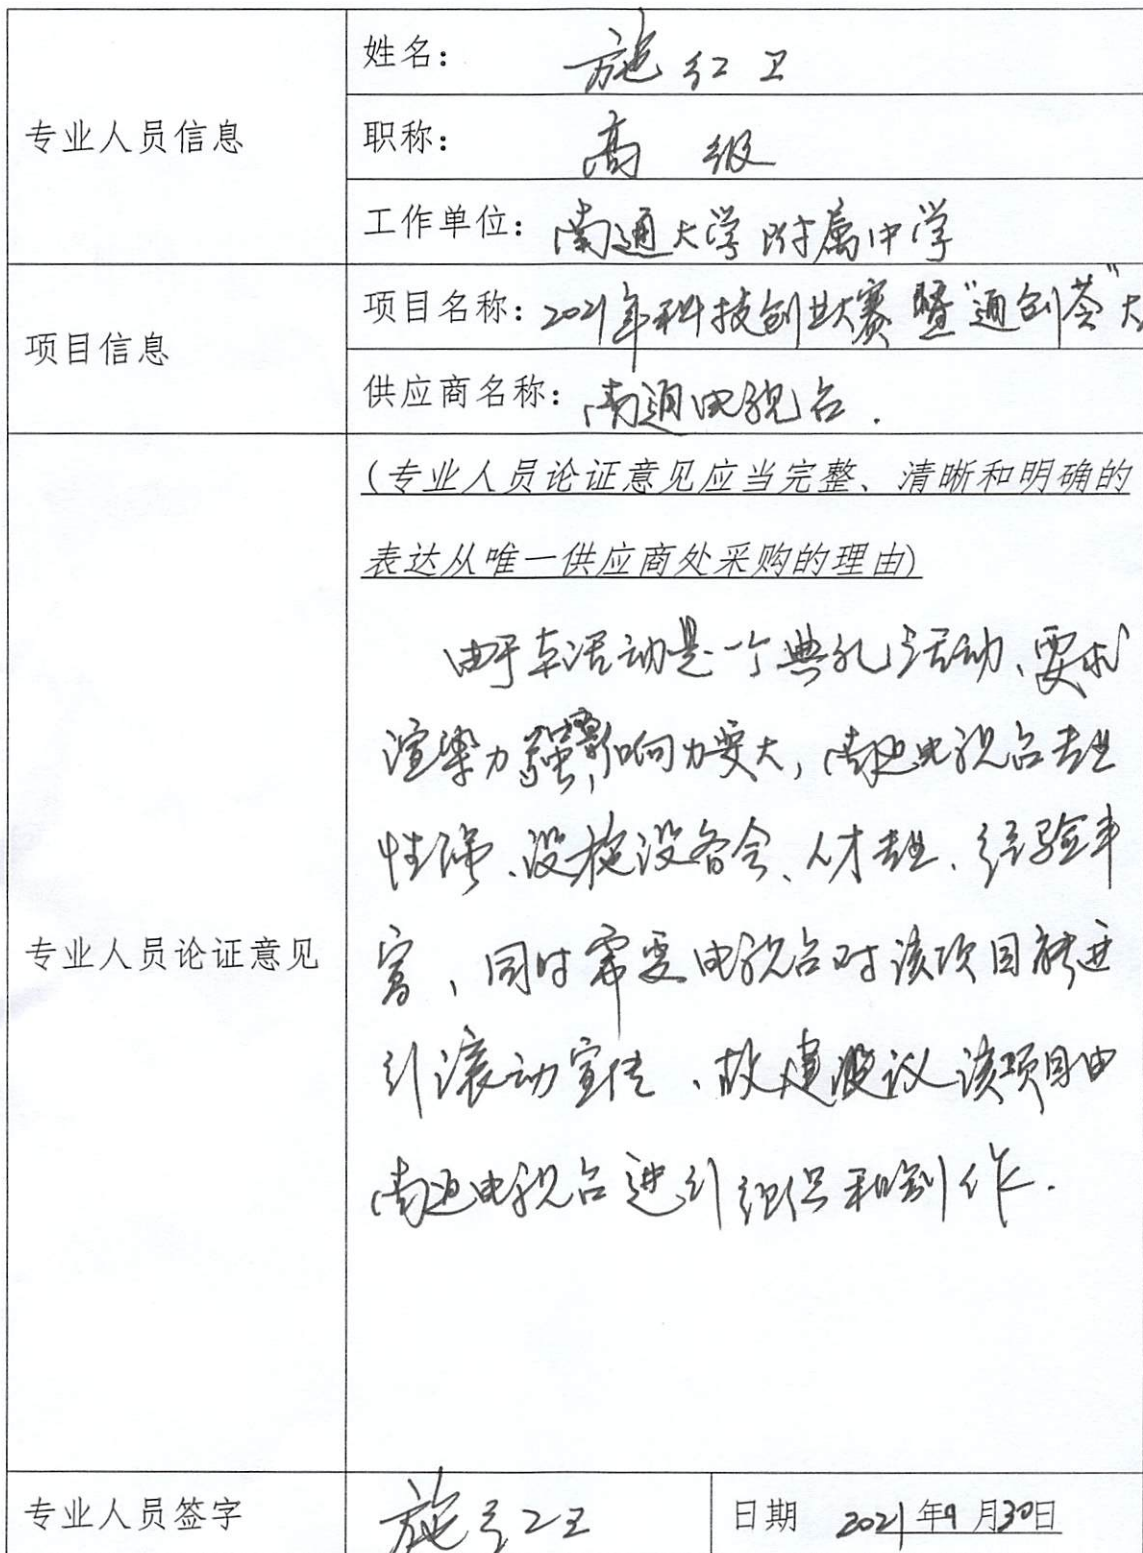 专业人员信息
姓名： 施红卫
职称： 高级
工作单位：南通大学附属中学
项目信息
项目名称：2021年科技创业大赛暨"通创荟"大
供应商名称：南通电视台.
专业人员论证意见
(专业人员论证意见应当完整、清晰和明确的
表达从唯一供应商处采购的理由)
由于本活动是一个典礼活动、要求
渲染力强,影响力要大,南通电视台专业
性强、设施设备全、人才专业、经验丰
富,同时需要电视台对该项目进
行滚动宣传、故建议该项目由
南通电视台进行组织和制作.
专业人员签字 施红卫 日期 2021年9月30日